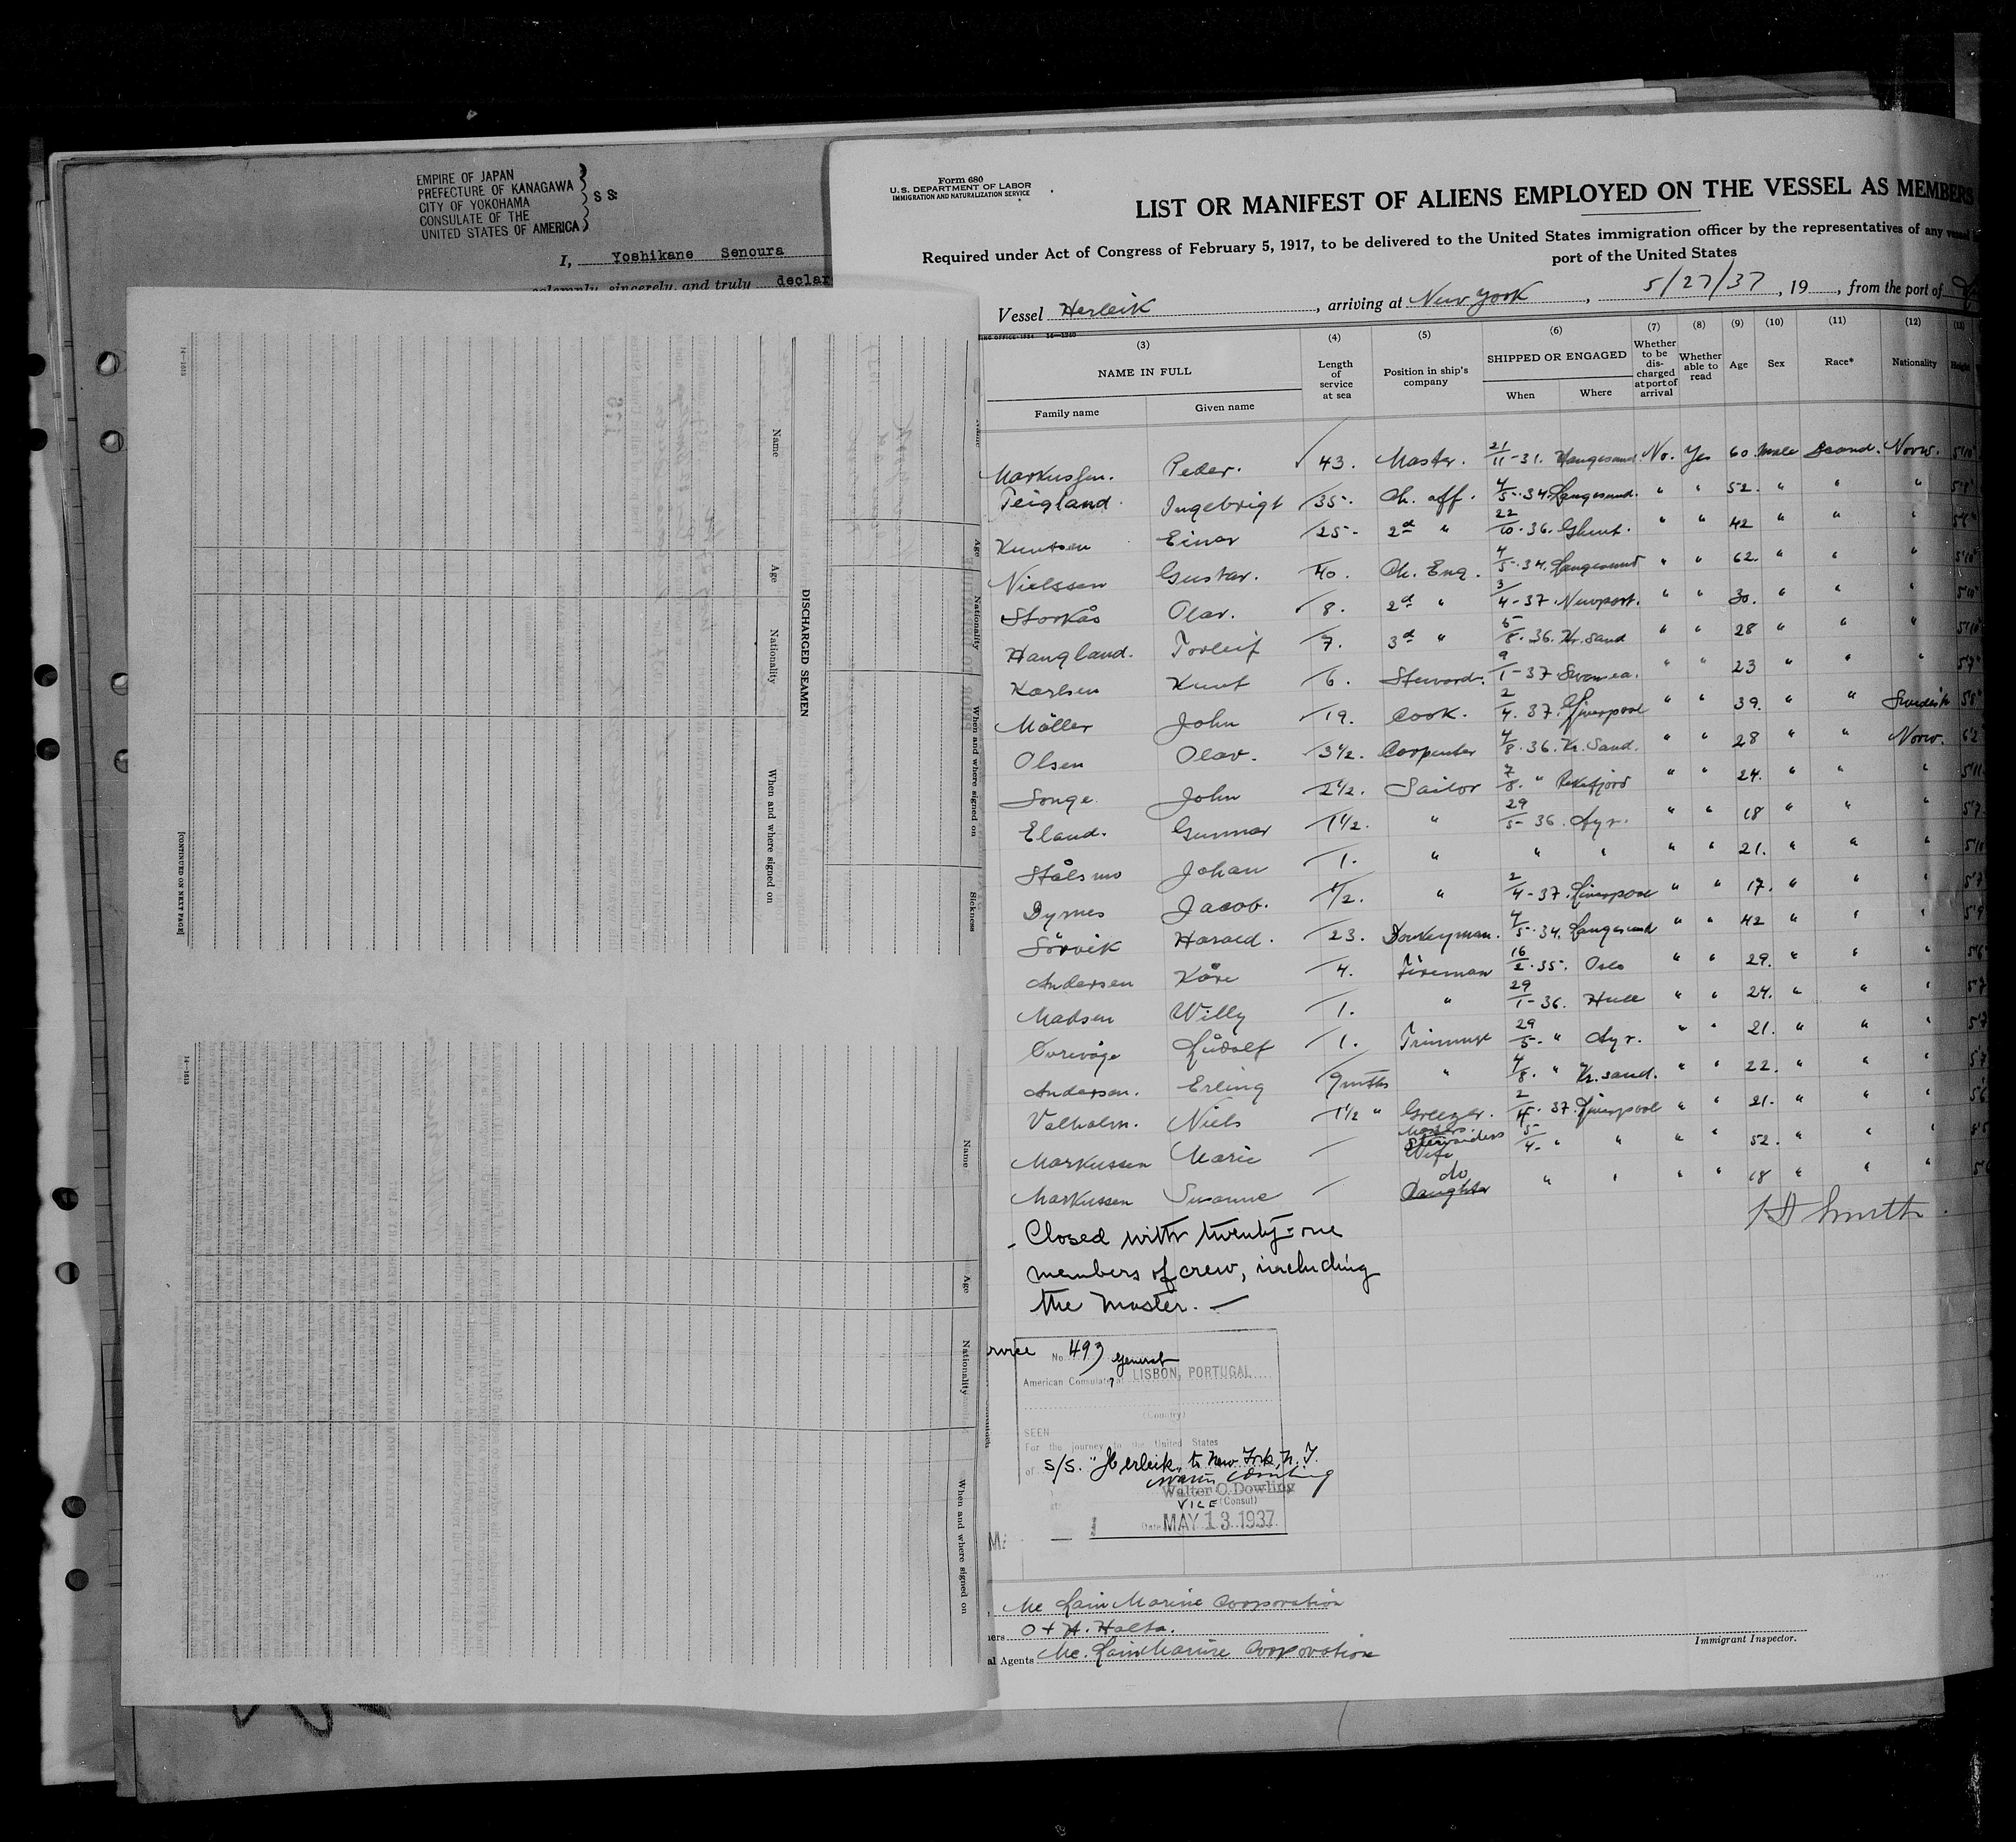 EMPIRE OF JAPAN
PREFECTURE OF KANAGAWA
CITY OF YOKOHAMA
CONSULATE OF THE
UNITED STATES OF AMERICA
S S:
I, Yoshikane Senoura
solemnly, sincerely, and truly declar
14—1613
Name
Age
Nationality
When and where signed on
DISCHARGED SEAMEN
[CONTINUED ON NEXT PAGE]
Age
Nationality
When and where signed on
Sickness
14—1613
Name
Age
Nationality
When and where signed on
Form 680
U. S. DEPARTMENT OF LABOR
IMMIGRATION AND NATURALIZATION SERVICE
LIST OR MANIFEST OF ALIENS EMPLOYED ON THE VESSEL AS MEMBERS
Required under Act of Congress of February 5, 1917, to be delivered to the United States immigration officer by the representatives of any vessel
port of the United States
Vessel Herleik, arriving at New York, 5/27/37, 19, from the port of
(3) (4) (5) (6) (7) (8) (9) (10) (11) (12) (13)
NAME IN FULL
Family name Given name
Length of service at sea
Position in ship's company
SHIPPED OR ENGAGED
When Where
Whether to be discharged at port of arrival
Whether able to read
Age Sex Race* Nationality Height
Markussen. Peder. 43. Master. 21/11-31. Haugesund. No. Yes 60 Male Scand. Norw. 5'10"
Teigland Ingebrigt 35. Ch. off. 4/5.34. Langesund. " " 52. " " "
Knutsen Einar 25- 2d " 22/10.36. Ghent. " " 42 " " "
Nielssen Gustav. 40. Ch. Eng. 4/5.34. Langesund " " 62. " " " 5'10"
Storkås Olav. 8. 2d " 3/4-37. Newport. " " 30. " " "
Haugland. Torleif 7. 3d " 5/8.36. Kr. Sand " " 28 " " " 5'10"
Karlsen Knut 6. Steward. 9/1-37 Swansea. " " 23 " " " 5'7"
Möller John 19. Cook. 2/4.37. Liverpool " " 39. " " Swedish 5'8"
Olsen Olav. 3 1/2. Carpenter 4/8.36. Kr. Sand. " " 28 " " Norw. 6'2
Songe John 2 1/2. Sailor 7/8. " Rekefjord " " 24. " " " 5'11
Eland. Gunnar 1 1/2. " 29/5-36. Ayr. " " 18 " " " 5'7
Stålsmo Johan 1. " " " " " 21. " " " 5'10
Dyrnes Jacob. 1/2. " 2/4-37. Liverpool " " 17. " " " 5'7
Sörvik Harald. 23. Donkeyman. 4/5.34. Langesund " " 42 " " " 5'9
Andersen Kåre 4. Fireman 16/2.35. Oslo " " 29. " " " 5'6
Madsen Willy 1. " 29/1-36. Hull " " 24. " " " 5'7
Ludolf 1. Trimmer 29/5- " Ayr. " " 21. " " " 5'7
Andersen. Erling 9 mths " 4/8. " Kr. sand. " " 22. " " " 5'7
Valholm. Niels 1 1/2 " Greezer. 2/4.37. Liverpool " " 21. " " " 5'6
Markussen Marie Masters Stewardess Wife 5/4- " " " " 52. " " "
Markussen Susanne do Daughter " " " " 18 " " "
H Smith
Closed with twenty-one
members of crew, including
the master. —
No. 493
American Consulate General at LISBON, PORTUGAL
(Country)
SEEN
For the journey to the United States
of S/S. "Herleik" to New York, N. Y.
Walter C. Dowling
VICE (Consul)
Date MAY 13 1937
Mc Lain Marine Corporation
O + A. Holta.
al Agents Mc. Lain Marine Corporation
Immigrant Inspector.